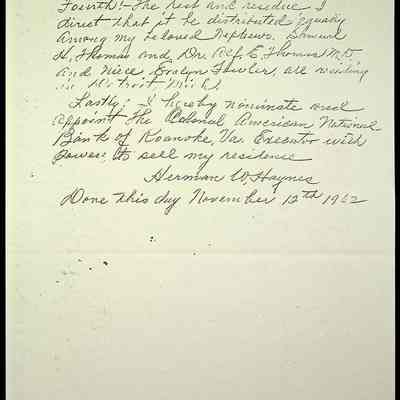 Fourth! The rest and residue I
direct that it be distributed equally
among my beloved Nephews. Samuel
H. Thomas and Dr. Alf. E. Thomas M.D
and Niece Evelyn Fowler, all residing
in Detroit Mich.
Lastly: I hereby nominate and
appoint The Colonial American National
Bank of Roanoke, Va. Executor with
power to sell my residence
Herman W. Haynes
Done this day November 12th 1962